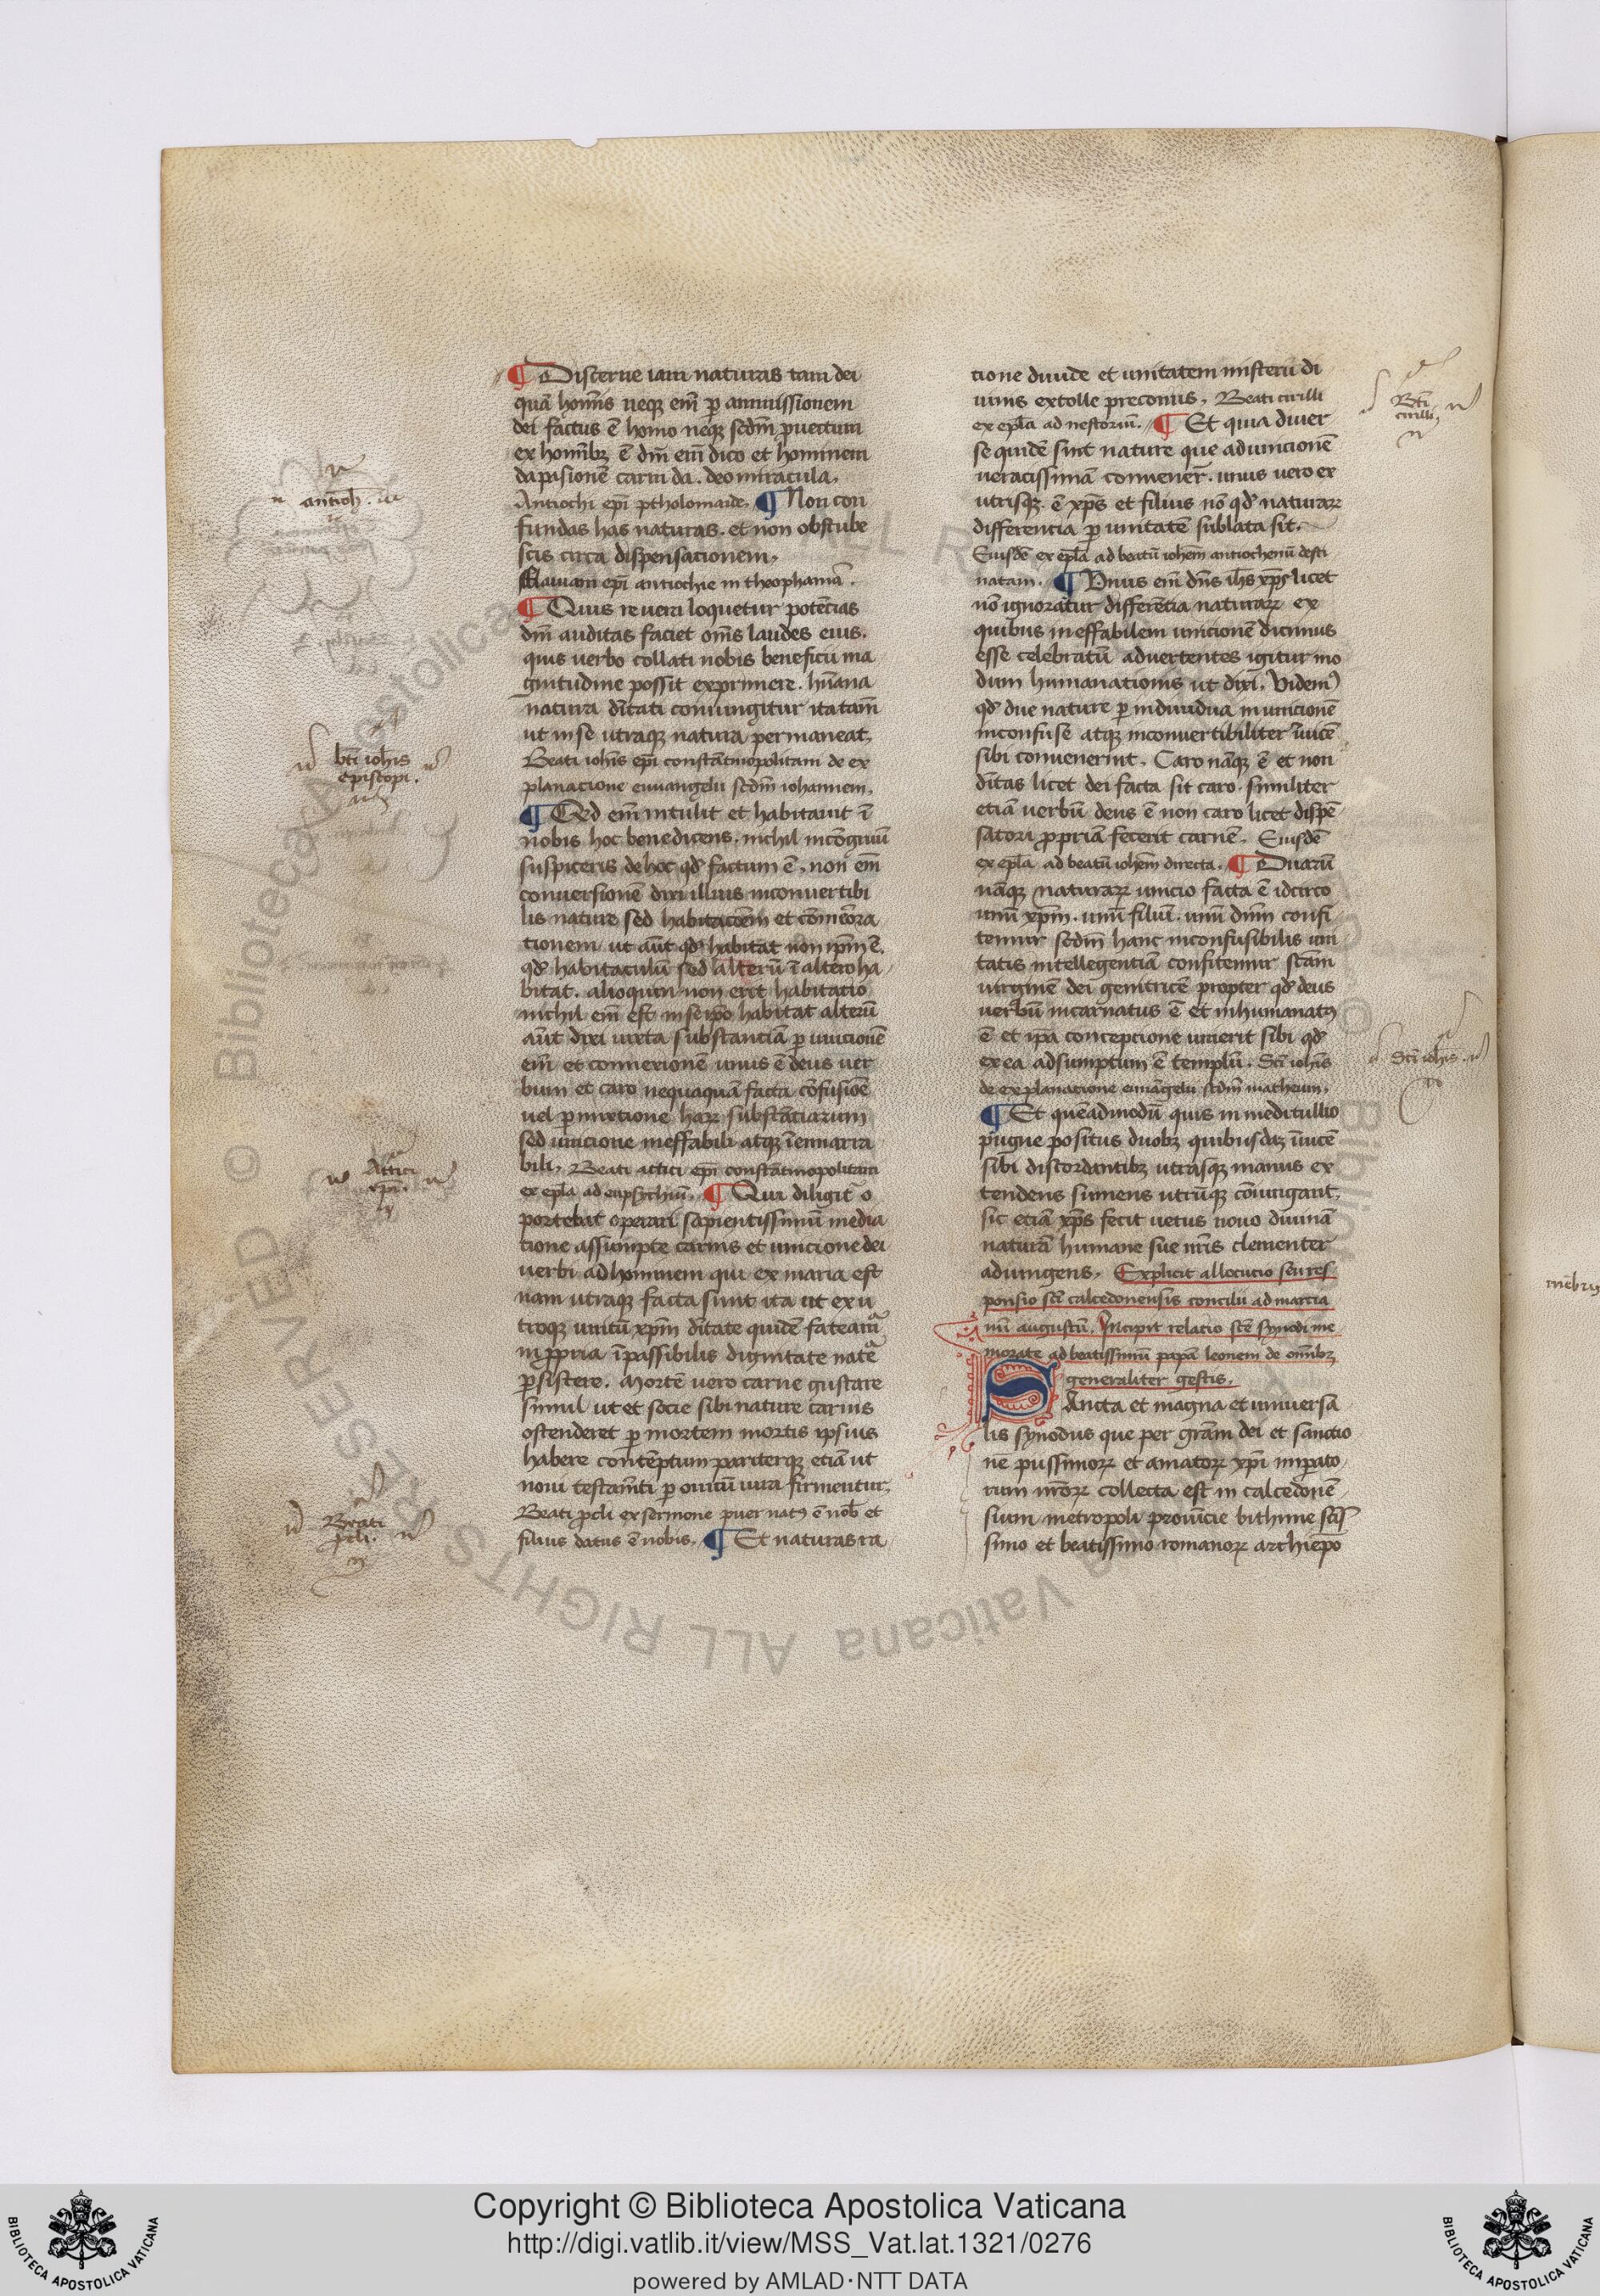 ¶ Discerne iam naturas tam dei
quā homīs neqȝ em̄ ꝑ amnissionem
dei factus ē homo neqȝ scdm̄ puectum
ex homībȝ ē dm̄ em̄ dico et hominem
da pasionē carni da . deo miracula .
Antiochi ep̄i ptholomaide . ¶ Non con
fundas has naturas . et non obstube
scis circa dispensacionem .
Flaviani ep̄i antiochie in theophaniā .
¶ Quis re vera loquetur potēcias
dm̄ auditas faciet om̄s laudes eius .
quis verbo collati nobis beneficii ma
gnitudine possit exprimere . hūana
natura dītati coniungitur ita tam̄
ut in se utraqȝ natura permaneat .
Beati ioh̄is ep̄i constātinopolitani de ex
planacione euuangelii scdm̄ iohannem .
¶ Sed em̄ intulit et habitavit ī
nobis hoc bene dicens . nichil incōgruū
suspiceris de hoc qd̛ factum ē . non em̄
conversionē dixi illius inconvertibi
lis nature sed habitacōem et cōmōra
tionem ut aūt qd̛ habitat non ip̄m ē .
qd̛ habitaculū sed alterū ī altero ha
bitat . alioquin non erit habitatio
nichil em̄ est in se ip̄o habitat alterū
aūt dixi iuxta substanciā ꝑ unicionē
em̄ et connexionē unus ē deus ver
bum et caro nequaquā facta cōfusiōe
vel ꝑ mixtione haꝝ substāciarum
sed unicione ineffabili atqȝ īennarra
bili . Beati attici ep̄i constātinopolitani
ex epl̄a ad eupsychiū . ¶ Qui diligit o
portebat operari sapientissimū media
tione assumpte carnis et unicione dei
verbi ad hominem qui ex maria est
nam utraqȝ facta sunt ita ut ex u
troqȝ unitū xp̄m dītate quidē fateam̄
in ꝓpria īpassibilis dignitate natē
ꝑsistere . Mortē vero carne gustare
simul ut et socie sibi nature carnis
ostenderet ꝑ mortem mortis ipsius
habere contēptum pariterqȝ etiā ut
novi testam̄ti ꝑ ovicū iura firmentur .
Beati ꝓcli ex sermone puer natꝰ ē nob̄ et
filius datus ē nobis . ¶ Et naturas ra
cione divide et unitatem misterii di
vinis extolle preconiis . Beati cirilli
ex epl̄a ad nestoriū . ¶ Et quia diver
se quidē sint nature que ad unicionē
veracissimā convener̄ . unus vero ex
utrisqȝ . ē xp̄s et filius nō qd̛ naturaꝝ
differencia ꝑ unitatē sublata sit .
Eiusdē ex epl̄a ad beatū ioh̄em antiochenū desti
natam . ¶ Unus em̄ dn̄s ih̄s xp̄s licet
nō ignoratur differētia naturaꝝ ex
quibus ineffabilem unicionē dicimus
esse celebratū advertentes igitur mo
dum humanationis ut dixi . videmꝰ
qd̛ due nature ꝑ individua in unicionē
inconfuse atqȝ inconvertibiliter īvicē
sibi convenerint . Caro nāqȝ ē et non
dītas licet dei facta sit caro . similiter
etiā verbū deus ē non caro licet dispē
satori ꝓpriā fecerit carnē . Eiusdē
ex epl̄a ad beatū ioh̄em directa . ¶ Duarū
nāqȝ naturaꝝ unicio facta ē idcirco
unū xp̄m . unū filiū . unū dn̄m confi
temur scdm̄ hanc inconfusibilis uni
tatis intellegentiā confitemur scam̄
virginē dei genitricē propter qd̛ deus
verbū incarnatus ē et inhumanatꝰ
ē et ip̄a conceptione unierit sibi qd̛
ex ea adsumptum ē templū . Scī ioh̄is
de explanacione euuāgelii scdm̄ matheum .
¶ Et quēadmodū quis in meditullio
pugne positus duobȝ quibusdaȝ īvicē
sibi discordantibȝ utrasqȝ manus ex
tendens sumens utrūqȝ cōiungant .
sic etiā xp̄s fecit vetus novo divinā
naturā humane sue nr̄is clementer
adiungens . Explicit allocucio seu res
ponsio scī calcedonensis concilii ad marcia
nū augustū . Incipit relacio scē synodi me
morate ad beatissimū papā leonem de om̄ibȝ
generaliter gestis .
SAncta et magna et universa
lis synodus que per gr̄am dei et sanctio
nē piissimoꝝ et amatoꝝ xp̄i imperato
rum nr̄oꝝ collecta est in calcedonē
sium metropoli provīcie bithinie scīs
simo et beatissimo romanoꝝ archiep̄o
antioh̄ .
bti ioh̄is
episcopi .
Attici
ep̄i .
Beati
ꝓcli .
Bt̄i
cirilli
Scī ioh̄is .
Copyright © Biblioteca Apostolica Vaticana
http://digi.vatlib.it/view/MSS_Vat.lat.1321/0276
powered by AMLAD·NTT DATA
BIBLIOTECA APOSTOLICA VATICANA
BIBLIOTECA APOSTOLICA VATICANA